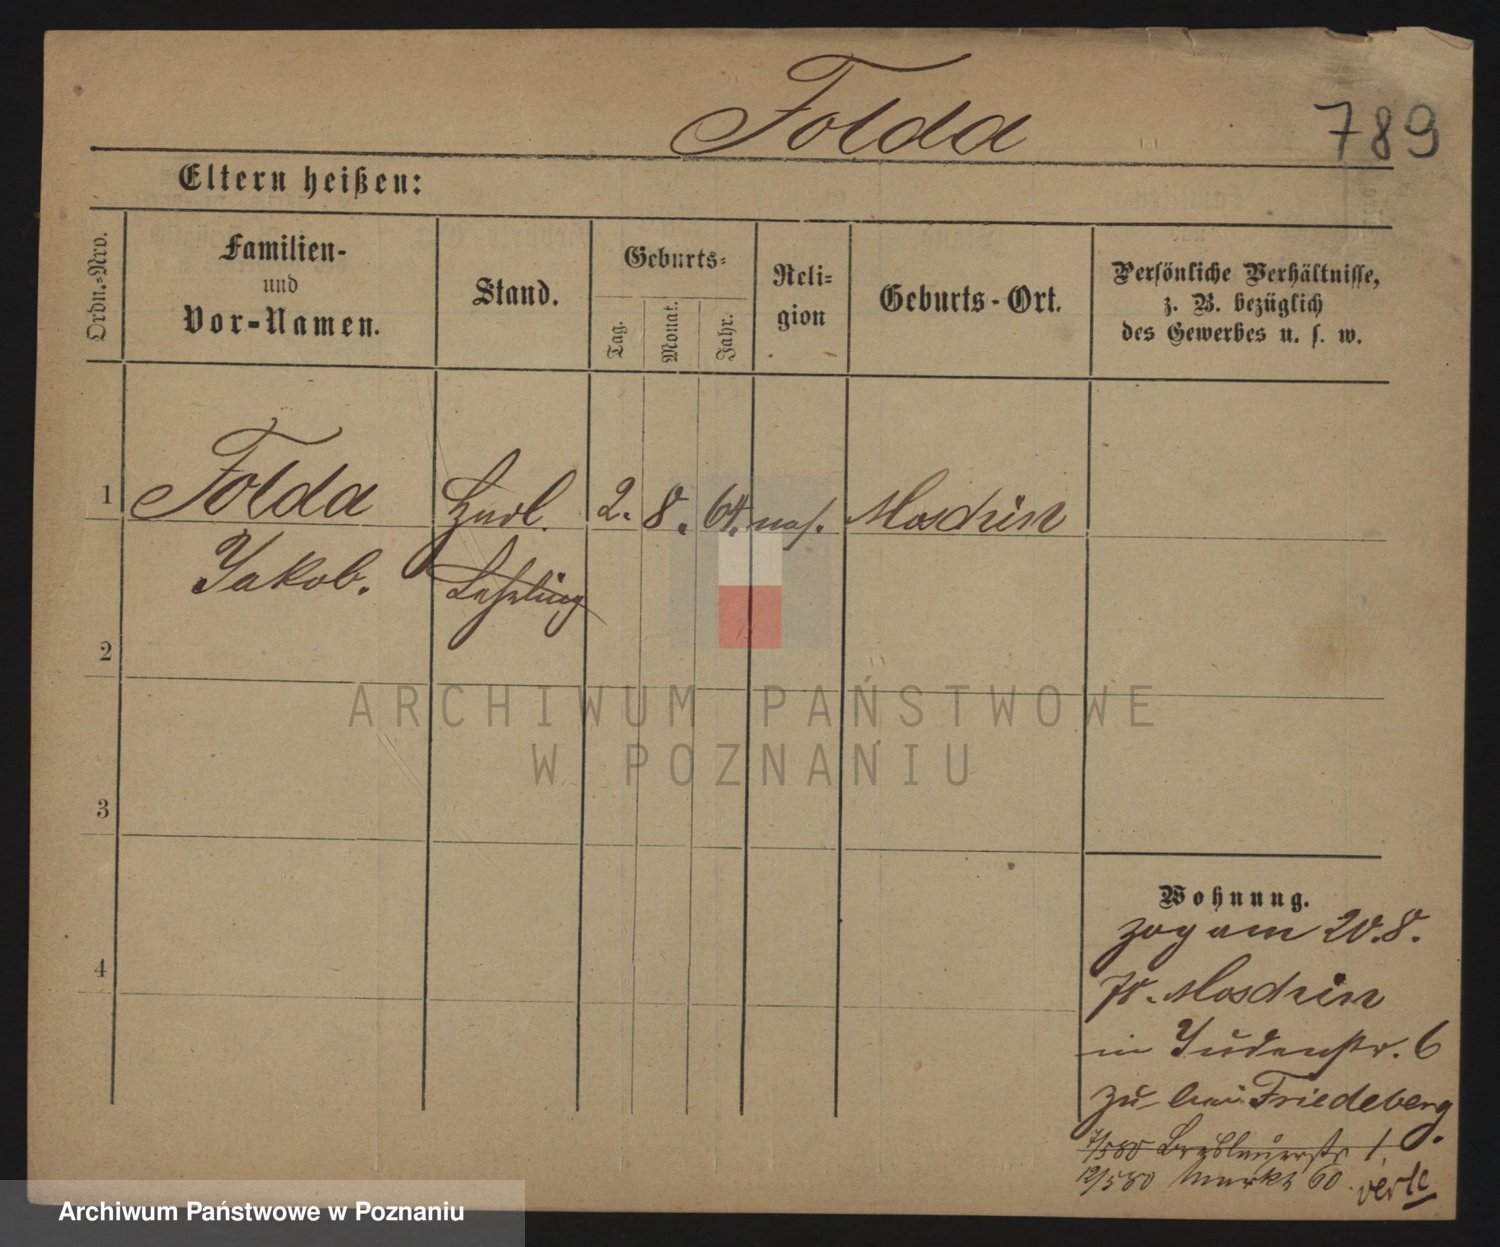 Folda
789
Eltern heißen:
Ordn.=Nro.
Familien-
und
Vor-Namen.
Stand.
Geburts=
Tag.
Monat.
Jahr.
Reli=
gion
Geburts-Ort.
Persönliche Verhältnisse,
z. B. bezüglich
des Gewerbes u. s. w.
1 Folda 2. 8. 64. Moschin
Jakob. Lehrling
2
3
4
Wohnung.
zog am 20.8.
78. Moschin
in Judenstr. 6
zu bei Friedeberg.
7/5 80 Breslauerstr 1.
12/5 80 Markt 60.
verte
ARCHIWUM PAŃSTWOWE
W POZNANIU
Archiwum Państwowe w Poznaniu